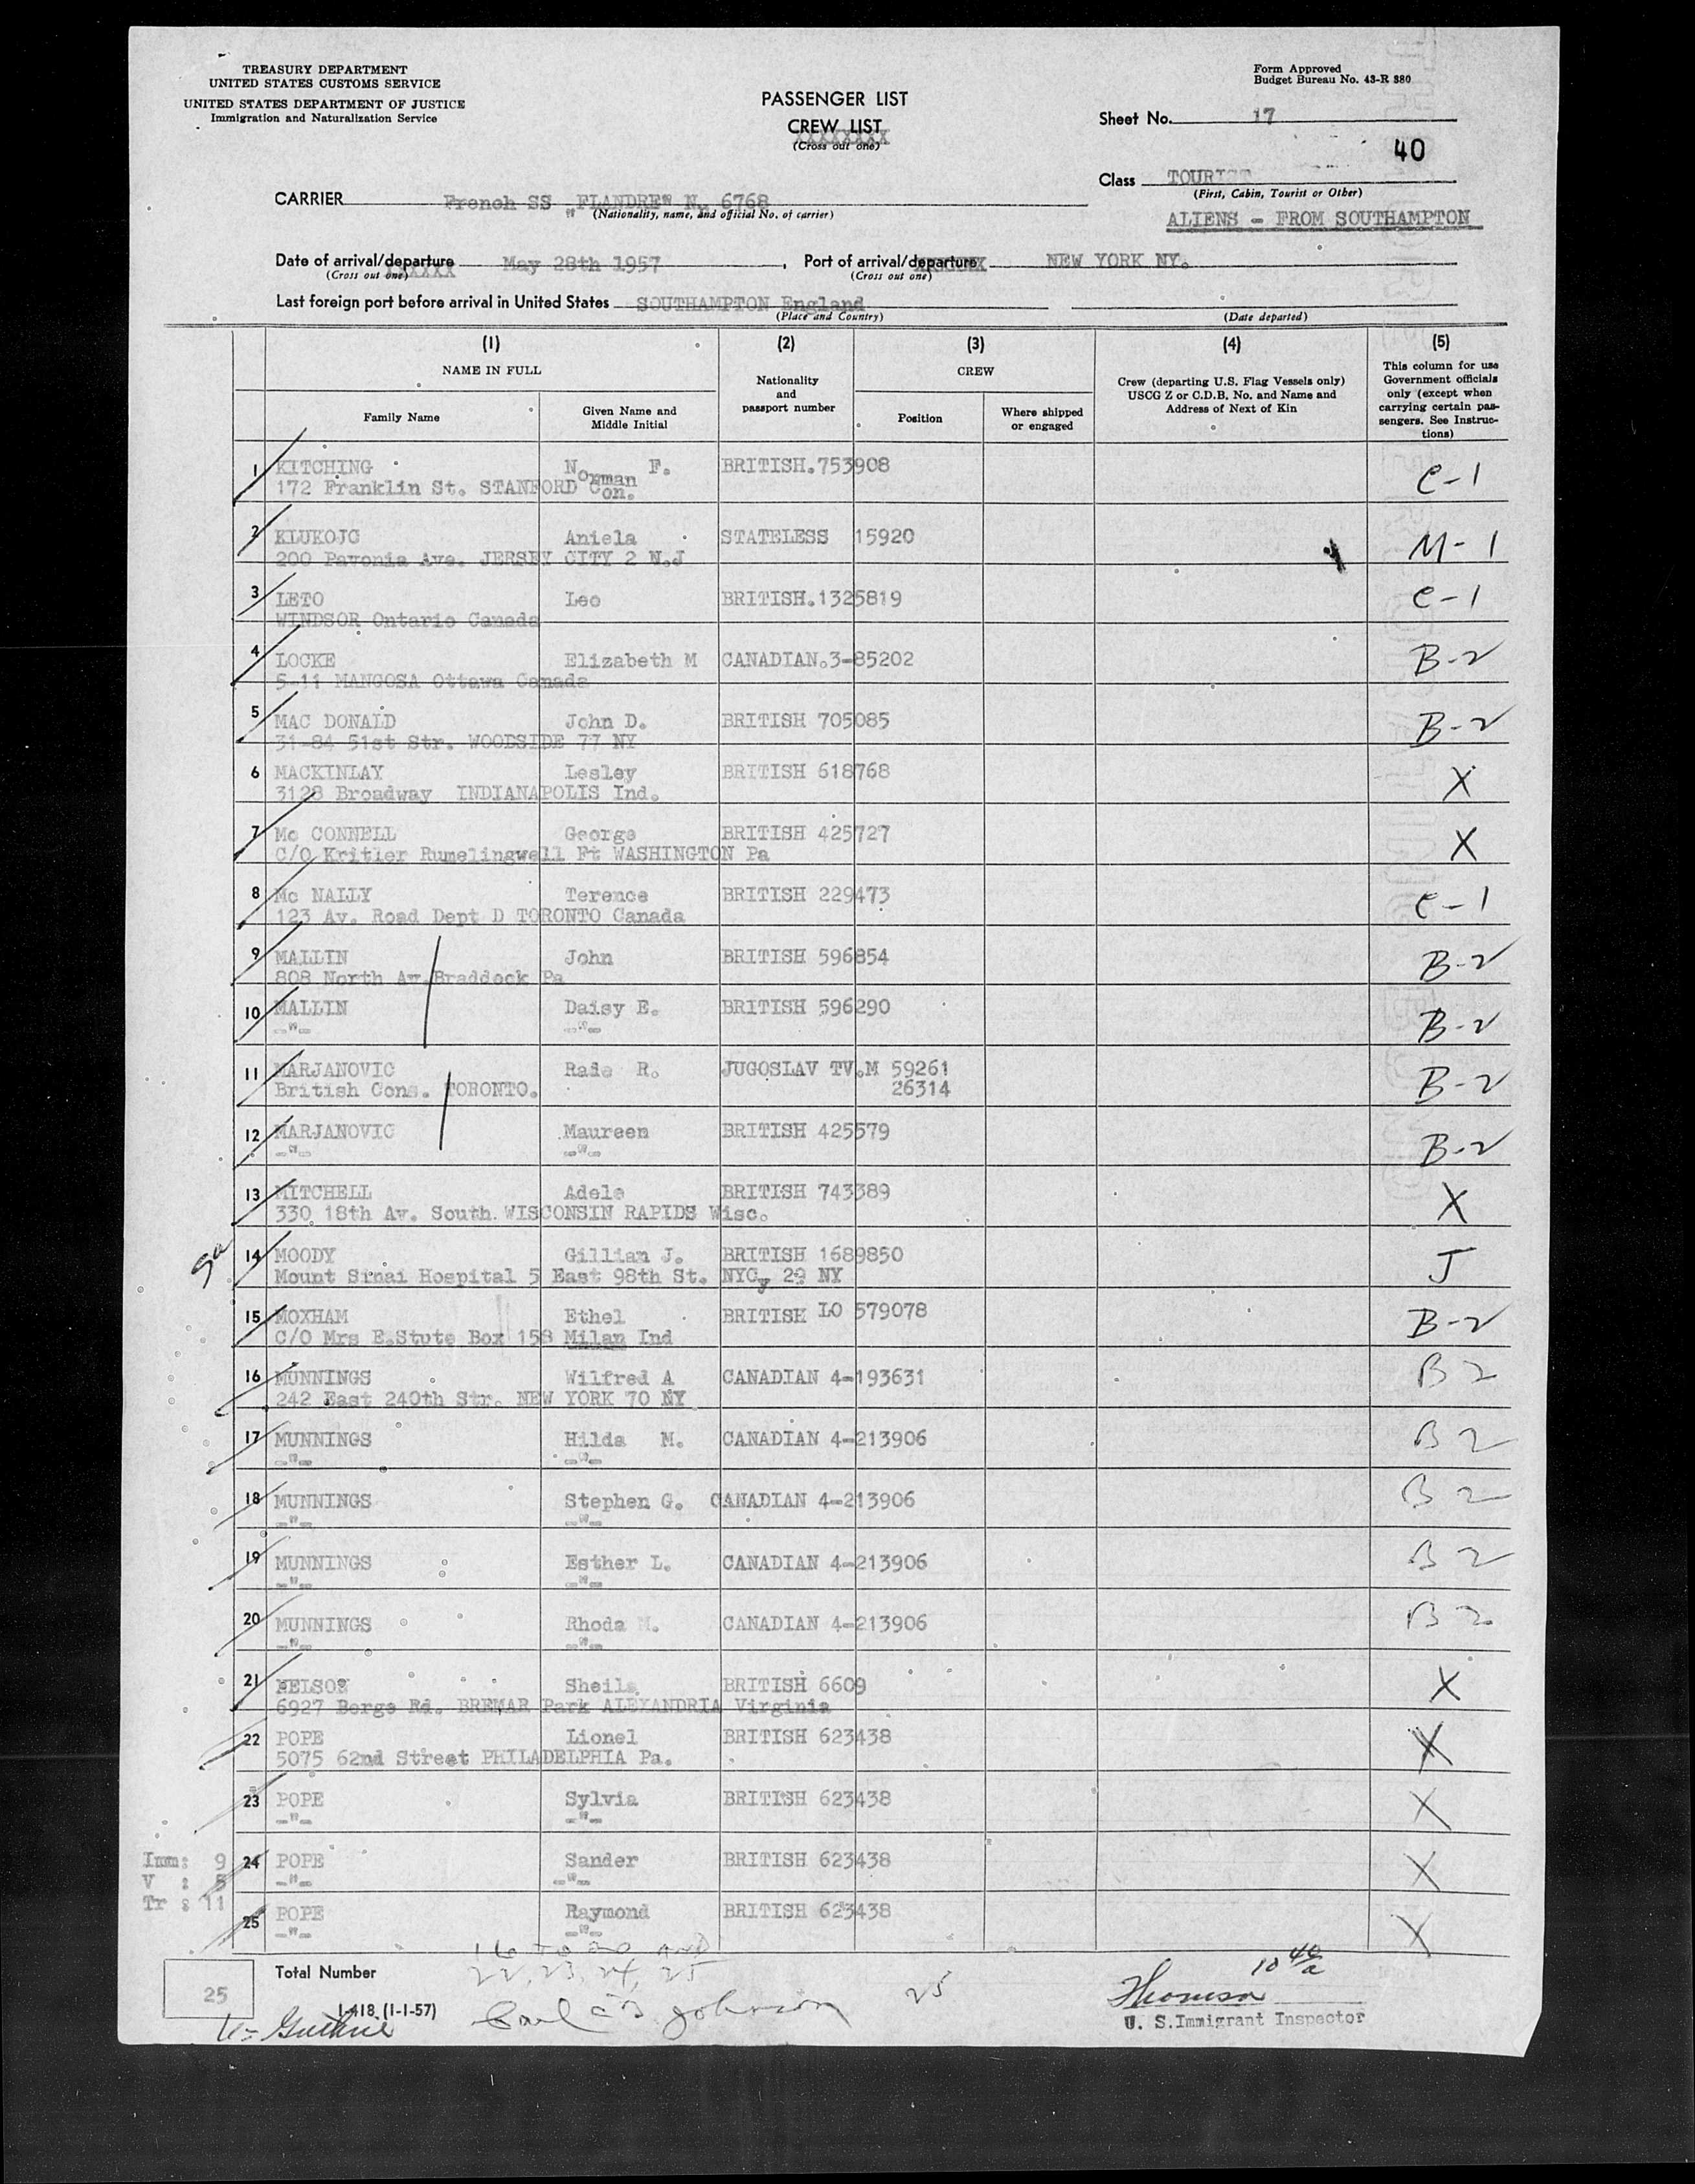 TREASURY DEPARTMENT
UNITED STATES CUSTOMS SERVICE
UNITED STATES DEPARTMENT OF JUSTICE
Immigration and Naturalization Service
PASSENGER LIST
CREW LIST
(Cross out one)
Form Approved
Budget Bureau No. 43-R 380
Sheet No. 17
40
Class TOURIST
(First, Cabin, Tourist or Other)
ALIENS - FROM SOUTHAMPTON
CARRIER French SS "FLANDRE" N. 6768
(Nationality, name, and official No. of carrier)
Date of arrival/departure May 28th 1957, Port of arrival/departure NEW YORK NY.
(Cross out one) (Cross out one)
Last foreign port before arrival in United States SOUTHAMPTON England
(Place and Country) (Date departed)
(1) (2) (3) (4) (5)
NAME IN FULL
Family Name
Given Name and Middle Initial
Nationality and passport number
CREW
Position
Where shipped or engaged
Crew (departing U.S. Flag Vessels only) USCG Z or C.D.B. No. and Name and Address of Next of Kin
This column for use Government officials only (except when carrying certain passengers. See Instructions)
1 KITCHING Norman F. BRITISH.753908 C-1
172 Franklin St. STANFORD Con.
2 KLUKOJC Aniela STATELESS 15920 M-1
200 Pavonia Ave. JERSEY CITY 2 N.J
3 LETO Leo BRITISH.1325819 C-1
WINDSOR Ontario Canada
4 LOCKE Elizabeth M CANADIAN.3-85202 B-2
5-11 MANGOSA Ottawa Canada
5 MAC DONALD John D. BRITISH 705085 B-2
31-84 51st Str. WOODSIDE 77 NY
6 MACKINLAY Lesley BRITISH 618768 X
3128 Broadway INDIANAPOLIS Ind.
7 Mc CONNELL George BRITISH 425727 X
C/O Kritler Rumelingwell Ft WASHINGTON Pa
8 Mc NALLY Terence BRITISH 229473 C-1
123 Av. Road Dept D TORONTO Canada
9 MALLIN John BRITISH 596854 B-2
808 North Av Braddock Pa
10 MALLIN Daisy E. BRITISH 596290 B-2
-"- -"-
11 MARJANOVIC Rade R. JUGOSLAV TV.M 59261 B-2
British Cons. TORONTO. 26314
12 MARJANOVIC Maureen BRITISH 425579 B-2
-"- -"-
13 MITCHELL Adele BRITISH 743389 X
330 18th Av. South WISCONSIN RAPIDS Wisc.
14 MOODY Gillian J. BRITISH 1689850 J
Mount Sinai Hospital 5 East 98th St. NYC, 29 NY
15 MOXHAM Ethel BRITISH LO 579078 B-2
C/O Mrs E.Stute Box 158 Milan Ind
16 MUNNINGS Wilfred A CANADIAN 4-193631 B2
242 East 240th Str. NEW YORK 70 NY
17 MUNNINGS Hilda M. CANADIAN 4-213906 B2
-"- -"-
18 MUNNINGS Stephen G. CANADIAN 4-213906 B2
-"- -"-
19 MUNNINGS Esther L. CANADIAN 4-213906 B2
-"- -"-
20 MUNNINGS Rhoda M. CANADIAN 4-213906 B2
-"- -"-
21 NELSON Sheila BRITISH 6609 X
6927 Berge Rd. BREMAR Park ALEXANDRIA Virginia
22 POPE Lionel BRITISH 623438 X
5075 62nd Street PHILADELPHIA Pa.
23 POPE Sylvia BRITISH 623438 X
-"- -"-
24 POPE Sander BRITISH 623438 X
-"- -"-
25 POPE Raymond BRITISH 623438 X
-"- -"-
Imm: 9
V : 5
Tr : 11
16 to 20 and
22, 23, 24, 25
25 Total Number
I-418 (1-1-57)
Guthrie
Johnson
25
10 40/a
Thomson
U. S. Immigrant Inspector